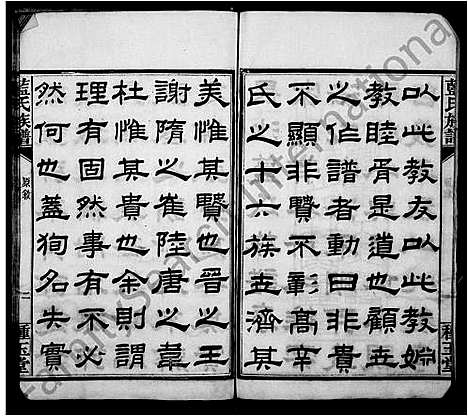 藍氏族譜
以此教友以此教婣
教睦胥是道也顧世
之作譜者動曰非貴
不顯非賢不彰高辛
氏之十六族世濟其
美惟其賢也晉之王
謝隋之崔陸唐之韋
杜惟其貴也余則謂
理有固然事有不必
然何也蓋徇名失實
藍氏族譜
原敘
二
種玉堂
種玉堂
FamilySearch International